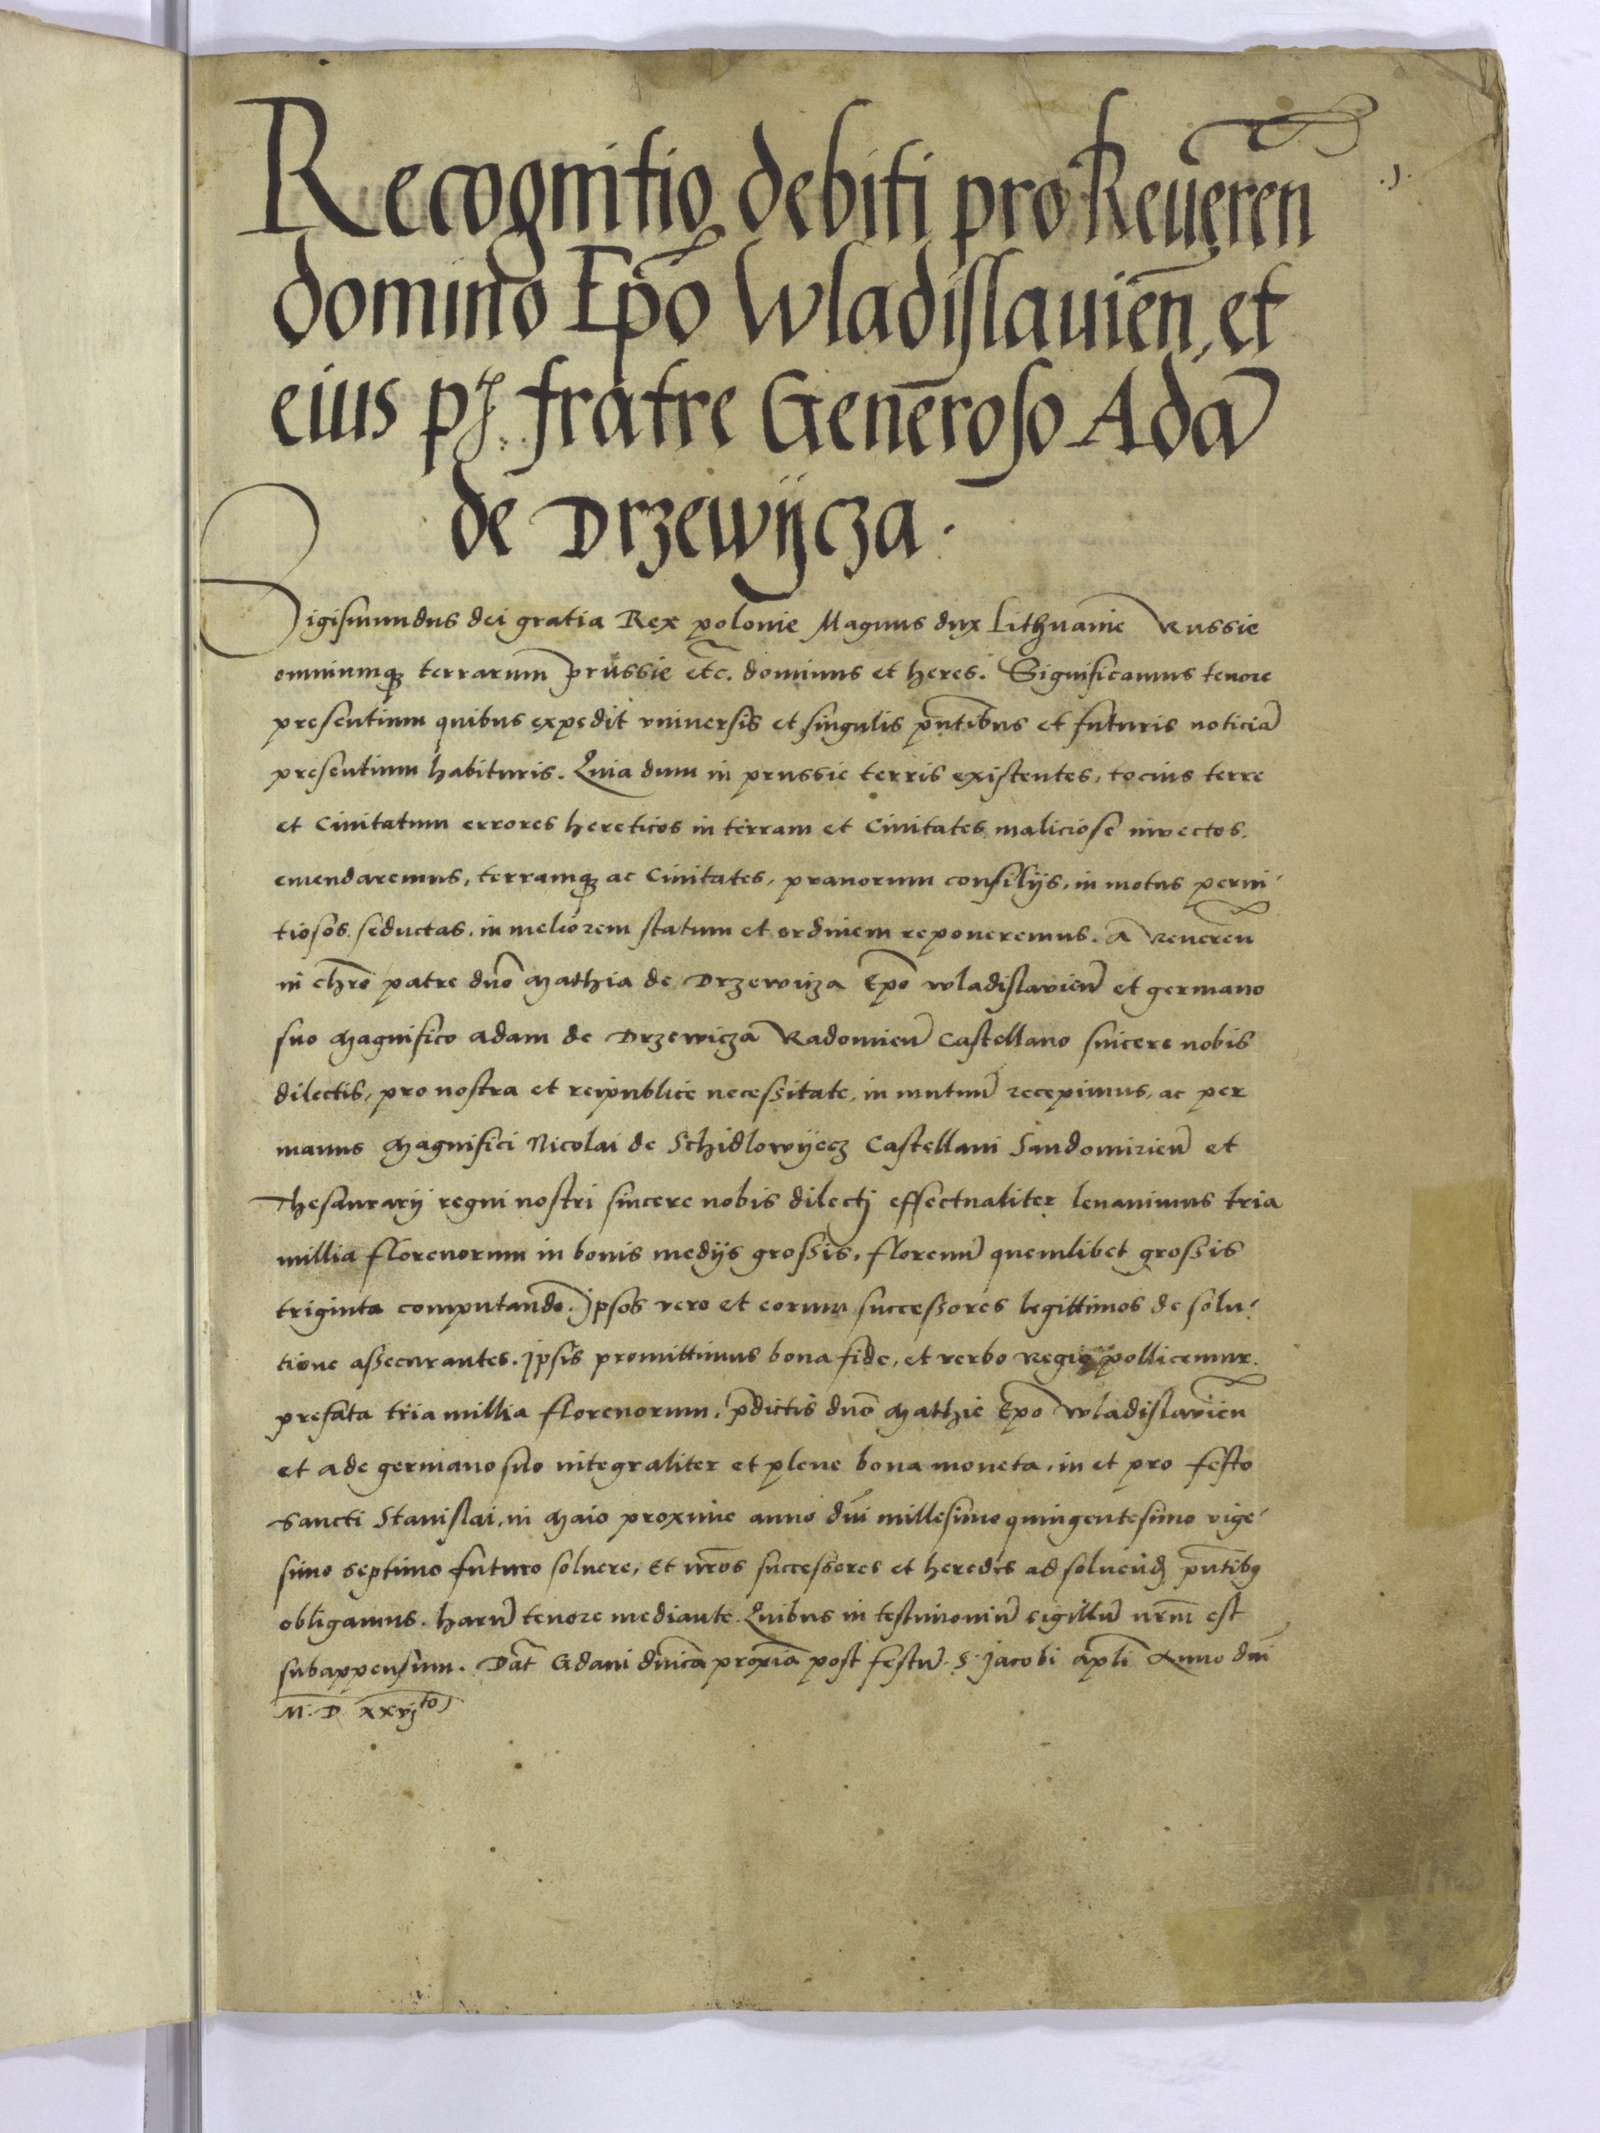 .1.
Recognitio debiti pro Reueren̄
domino Ep̄o Wladislauien̄, et
eius fratre Generoso Adā
de Drzewijcza.
Sigismundus dei gratia Rex polonie Magnus dux Lithuanie Russie
omniumqꝫ terrarum̄ prussie etc̄. dominus et heres. Significamus tenore
presentium quibus expedit vniuersis et singulis pn̄tibus et futuris noticiā
presentium habituris. Quia dum in prussie terris existentes, tocius terre
et Ciuitatum errores hereticos in terram et Ciuitates maliciose inuectos,
emendaremus, terramqꝫ ac Ciuitates, prauorum consilijs, in motus perni-
tiosos seductas, in meliorem statum et ordinem reponeremus. A Reueren̄
in chr̄o patre dn̄o Mathia de Drzewicza Ep̄o wladislavien̄ et germano
suo Magnifico Adam de Drzewicza Radomien̄ Castellano sincere nobis
dilectis, pro nostra et reipublice necessitate, in mutuū recepimus, ac per
manus Magnifici Nicolai de Schidlowijecz Castellani Sandomirien̄ et
Thesaurarij regni nostri sincere nobis dilectj effectualiter leuauimus tria
millia florenorum in bonis medijs grossis, florenū quemlibet grossis
triginta computando. Jpsos vero et eorum successores legittimos de solu-
tione assecurantes. Jpsis promittimus bona fide, et verbo Regio pollicemur.
prefata tria millia florenorum, p̄dictis dn̄o Mathie Ep̄o wladislavien̄
et Ade germano suo integraliter et plene bona moneta, in et pro festo
Sancti Stanislai, in Maio proxime anno dn̄i millesimo quingentesimo vige-
simo septimo futuro soluere, Et nr̄os successores et heredes ad soluend̄ pn̄tibꝰ
obligamus. harū tenore mediante. Quibus in testimoniū sigillū nr̄m est
subappensum. Dat̄ Gdani dn̄ica proxīa post festū S. Jacobi apl̄i Anno dn̄i
M. D. xxvjto